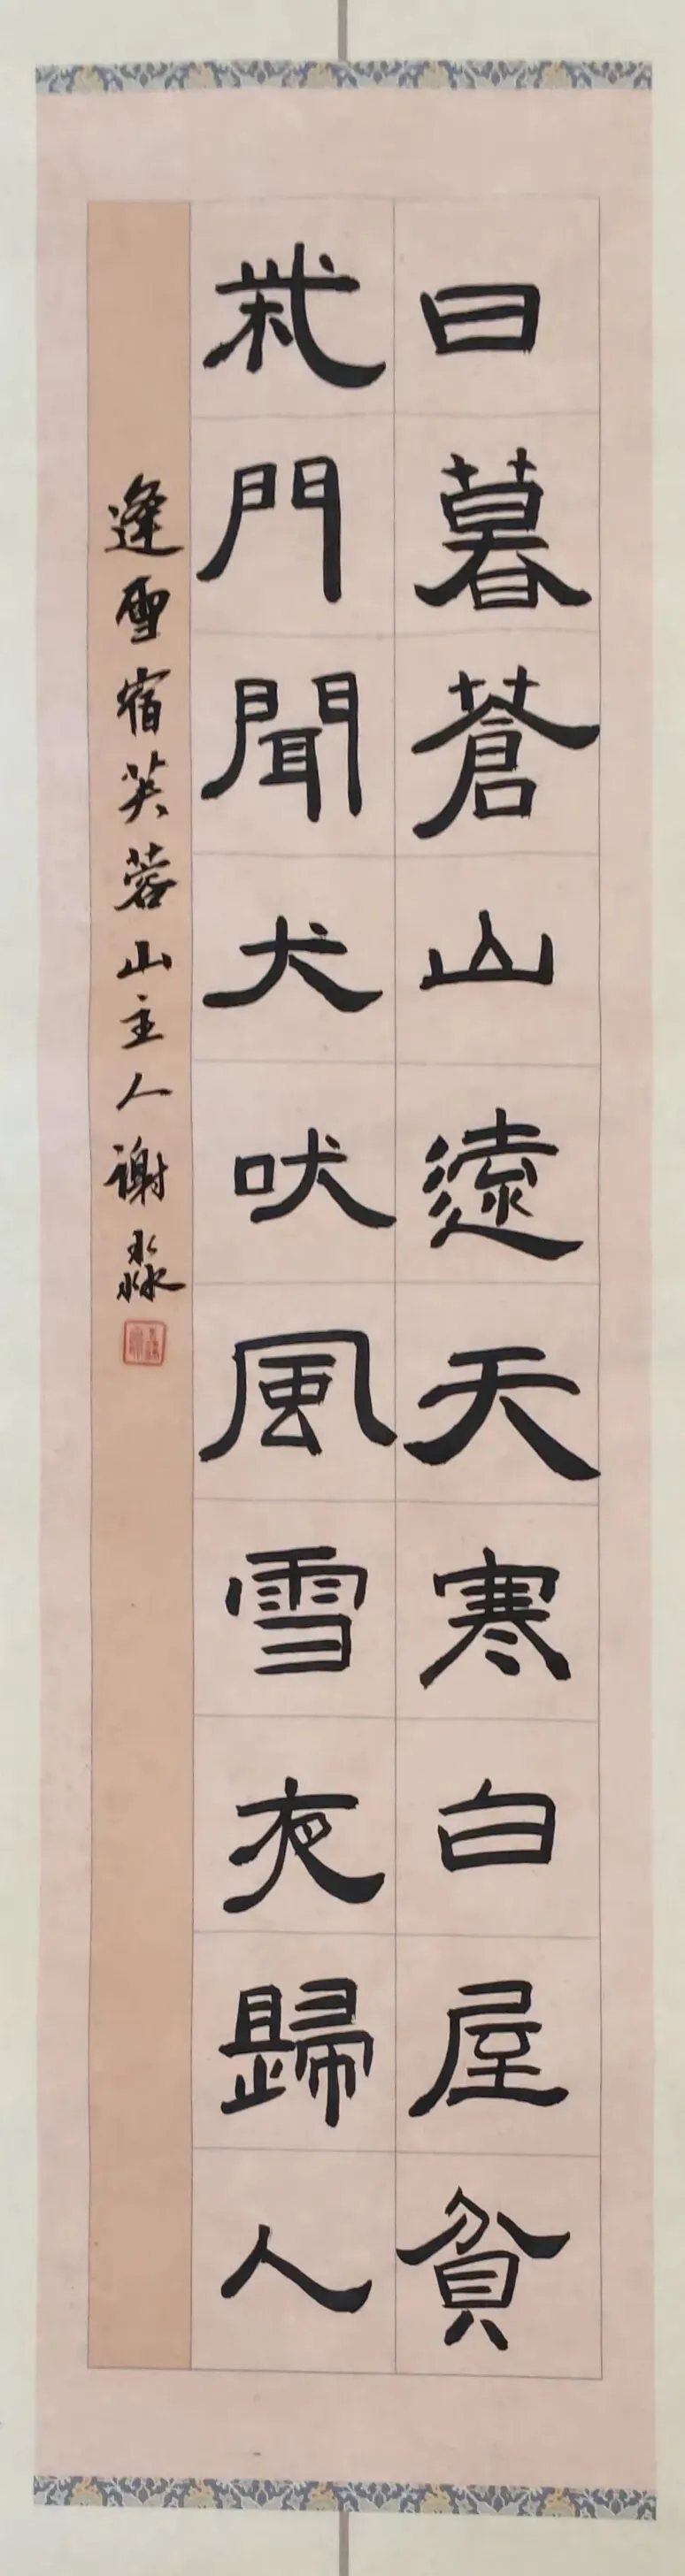 日暮蒼山遠天寒白屋貧
柴門聞犬吠風雪夜歸人
逢雪宿芙蓉山主人謝淼